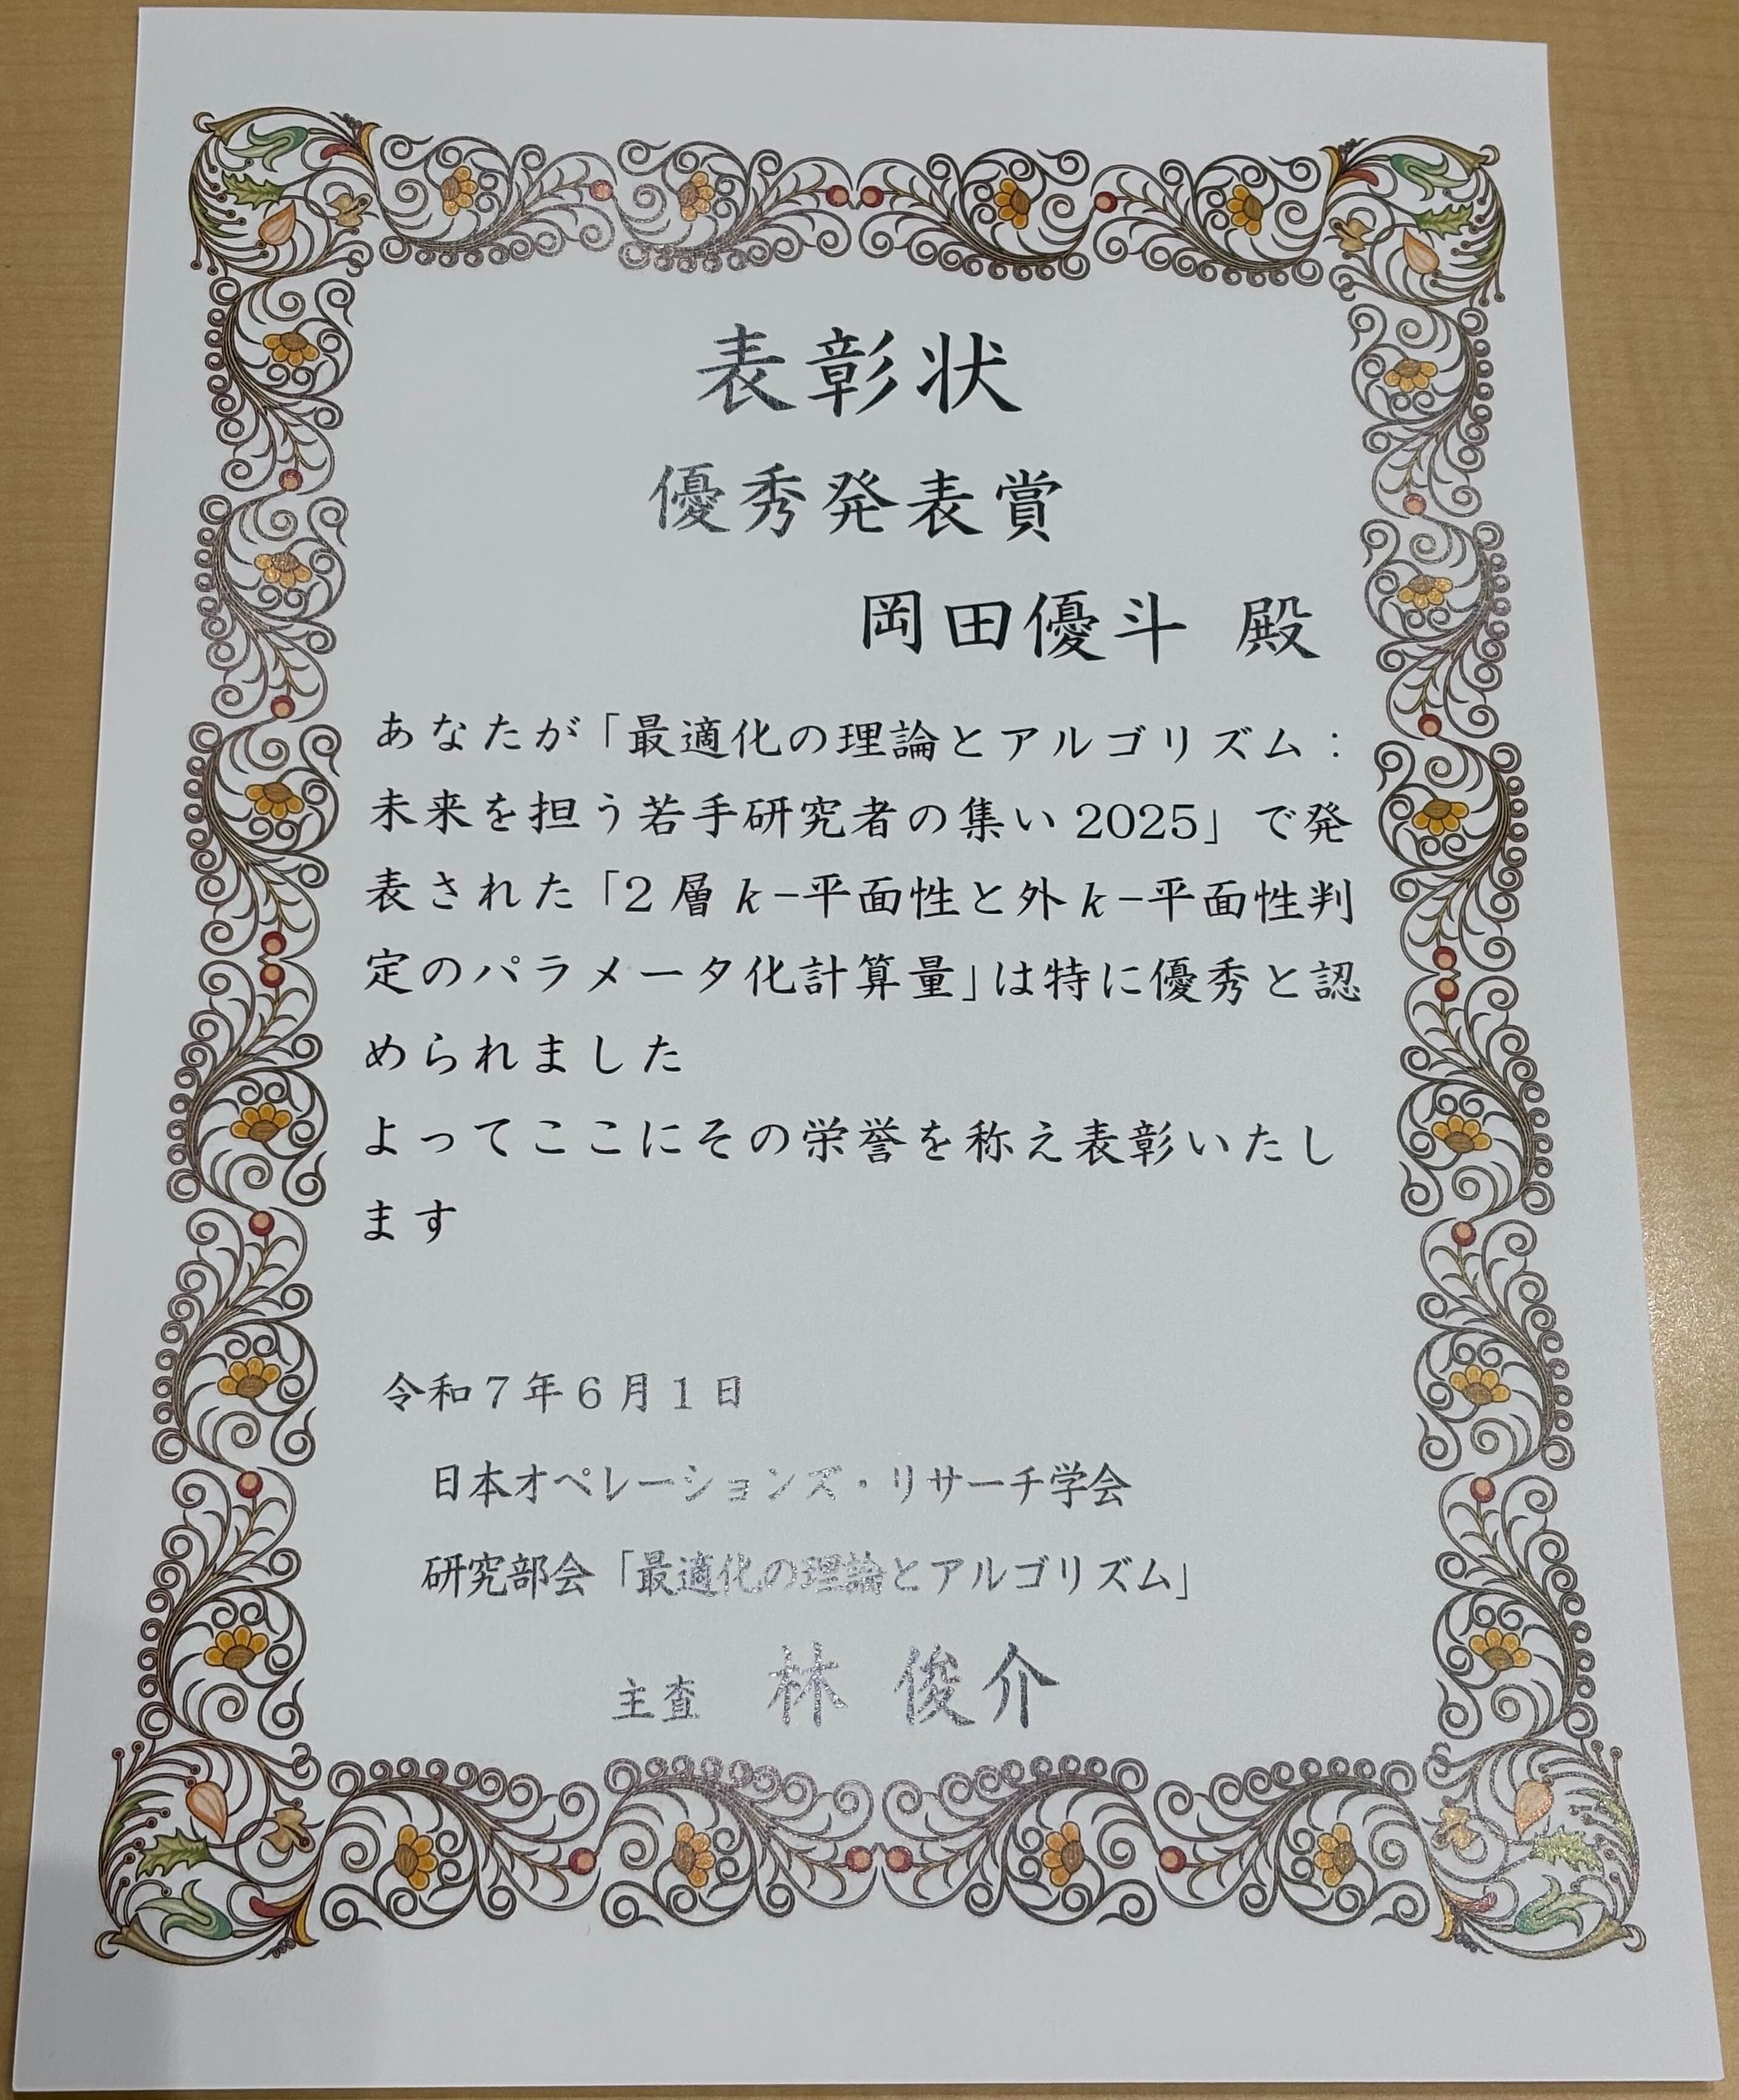 表彰状
優秀発表賞
岡田優斗 殿
あなたが「最適化の理論とアルゴリズム：
未来を担う若手研究者の集い2025」で発
表された「2層k-平面性と外k-平面性判
定のパラメータ化計算量」は特に優秀と認
められました
よってここにその栄誉を称え表彰いたし
ます
令和7年6月1日
日本オペレーションズ・リサーチ学会
研究部会「最適化の理論とアルゴリズム」
主査 林 俊介